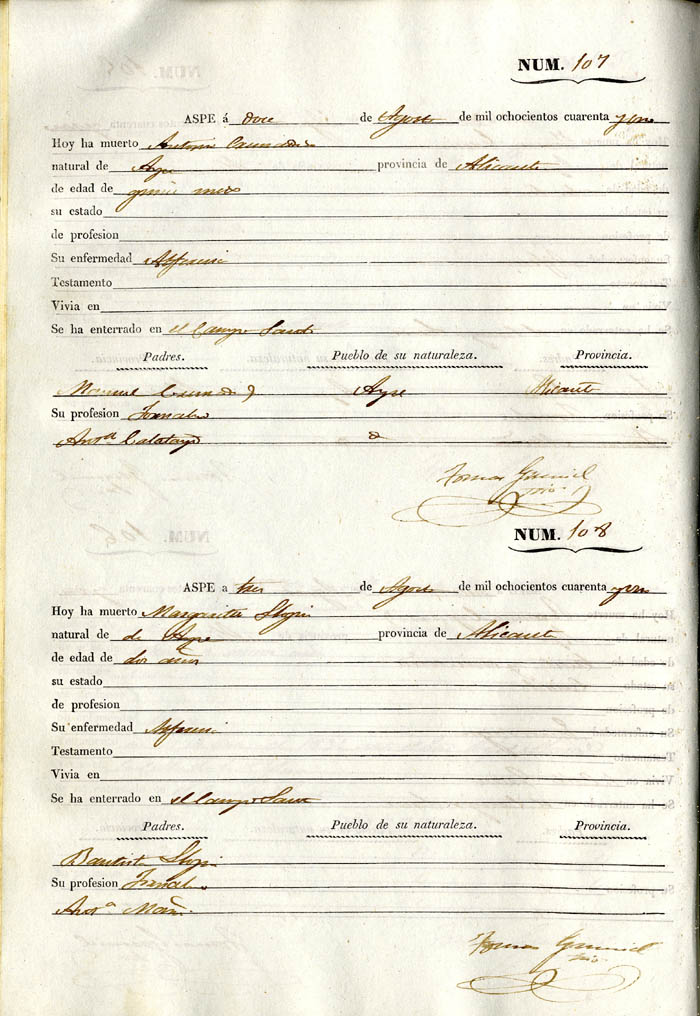 NUM. 107
ASPE á doce de Agosto de mil ochocientos cuarenta y uno
Hoy ha muerto Antonio
natural de Aspe provincia de Alicante
de edad de quince meses
su estado
de profesion
Su enfermedad
Testamento
Vivia en
Se ha enterrado en el Campo Santo
Padres. Pueblo de su naturaleza. Provincia.
Manuel Aspe Alicante
Su profesion Jornalero
Antª Calatayud
Tomas
NUM. 108
ASPE a tres de Agosto de mil ochocientos cuarenta y uno
Hoy ha muerto Margarita
natural de de Aspe provincia de Alicante
de edad de dos años
su estado
de profesion
Su enfermedad
Testamento
Vivia en
Se ha enterrado en el Campo Santo
Padres. Pueblo de su naturaleza. Provincia.
Bautista
Su profesion Jornalero
Antª
Tomas